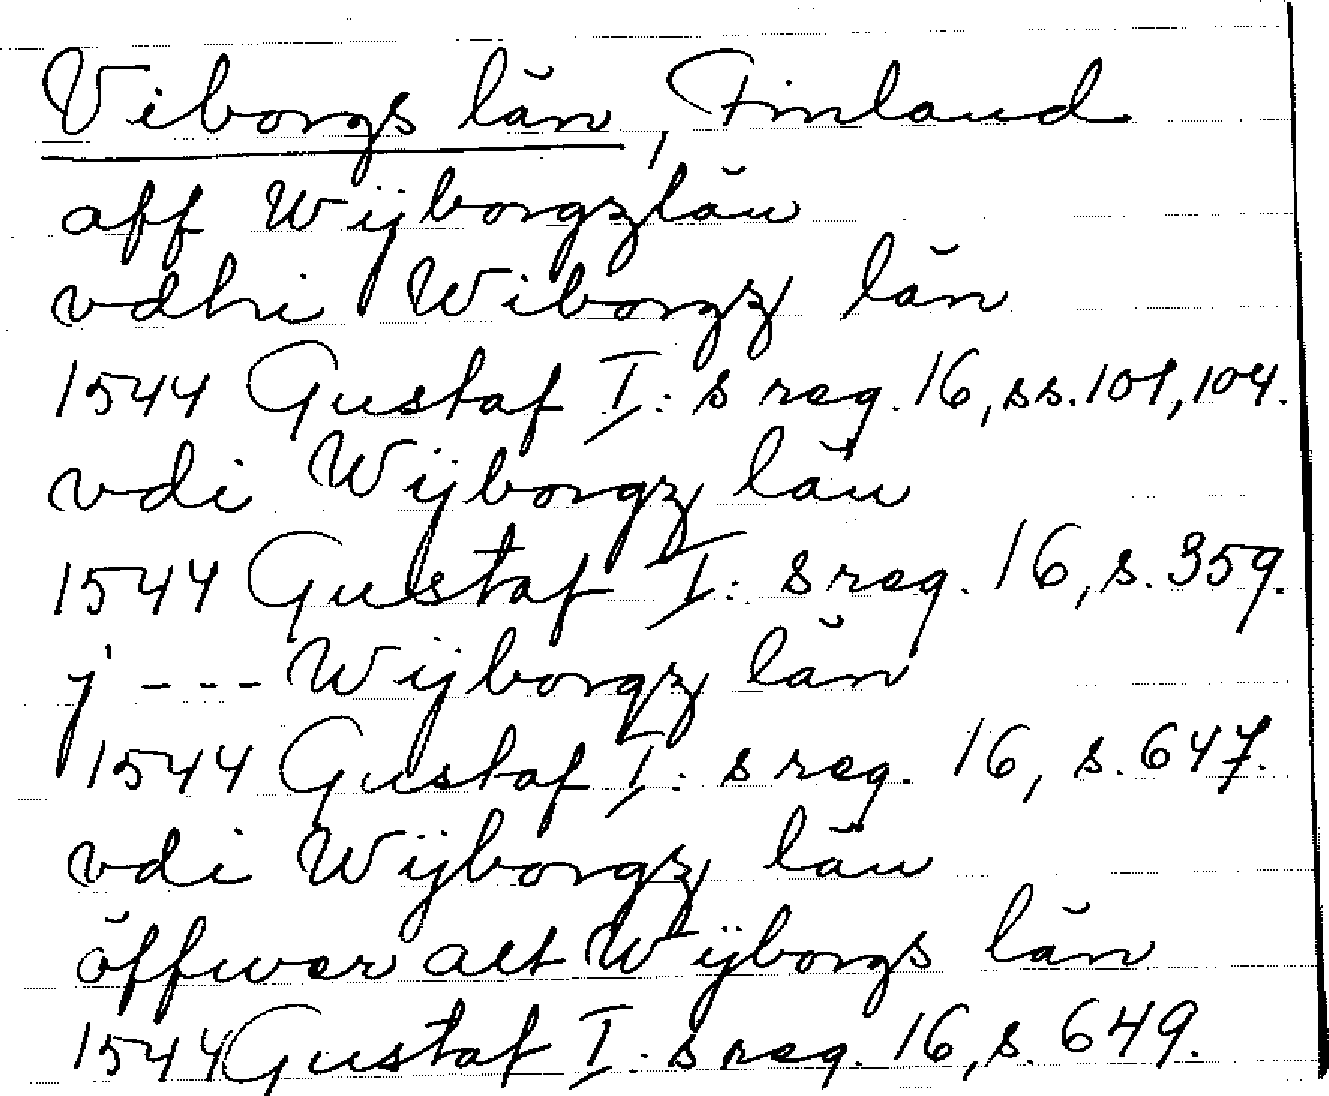 Viborgs län, Finland
aff Wijborgzlän
vdhi Wiborgz län
1544 Gustaf I:s reg. 16, ss. 101, 104.
vdi Wijborgz län
1544 Gustaf I:s reg. 16, s. 359.
j --- Wijborgz län
1544 Gustaf I:s reg. 16, s. 647.
vdi Wijborgz län
öffwer alt Wijborgs län
1544 Gustaf I:s reg. 16, s. 649.